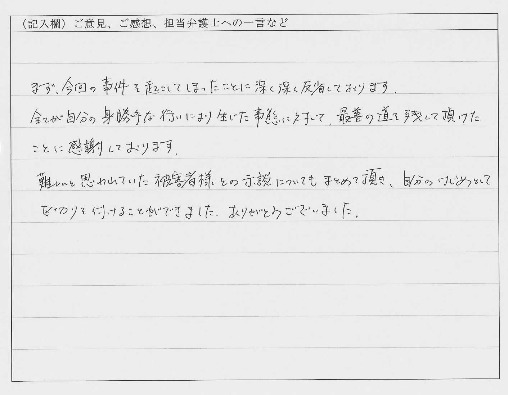 (記入欄)ご意見、ご感想、担当弁護士への一言など
まず、今回の事件を起こしてしまったことに深く深く反省しております。
全てが自分の身勝手な行いにより生じた事態に対して、最善の道を残して頂けた
ことに感謝しております。
難しいと思われていた被害者様との示談についてもまとめて頂き、自分のけじめとして
区切りを付けることができました。ありがとうございました。